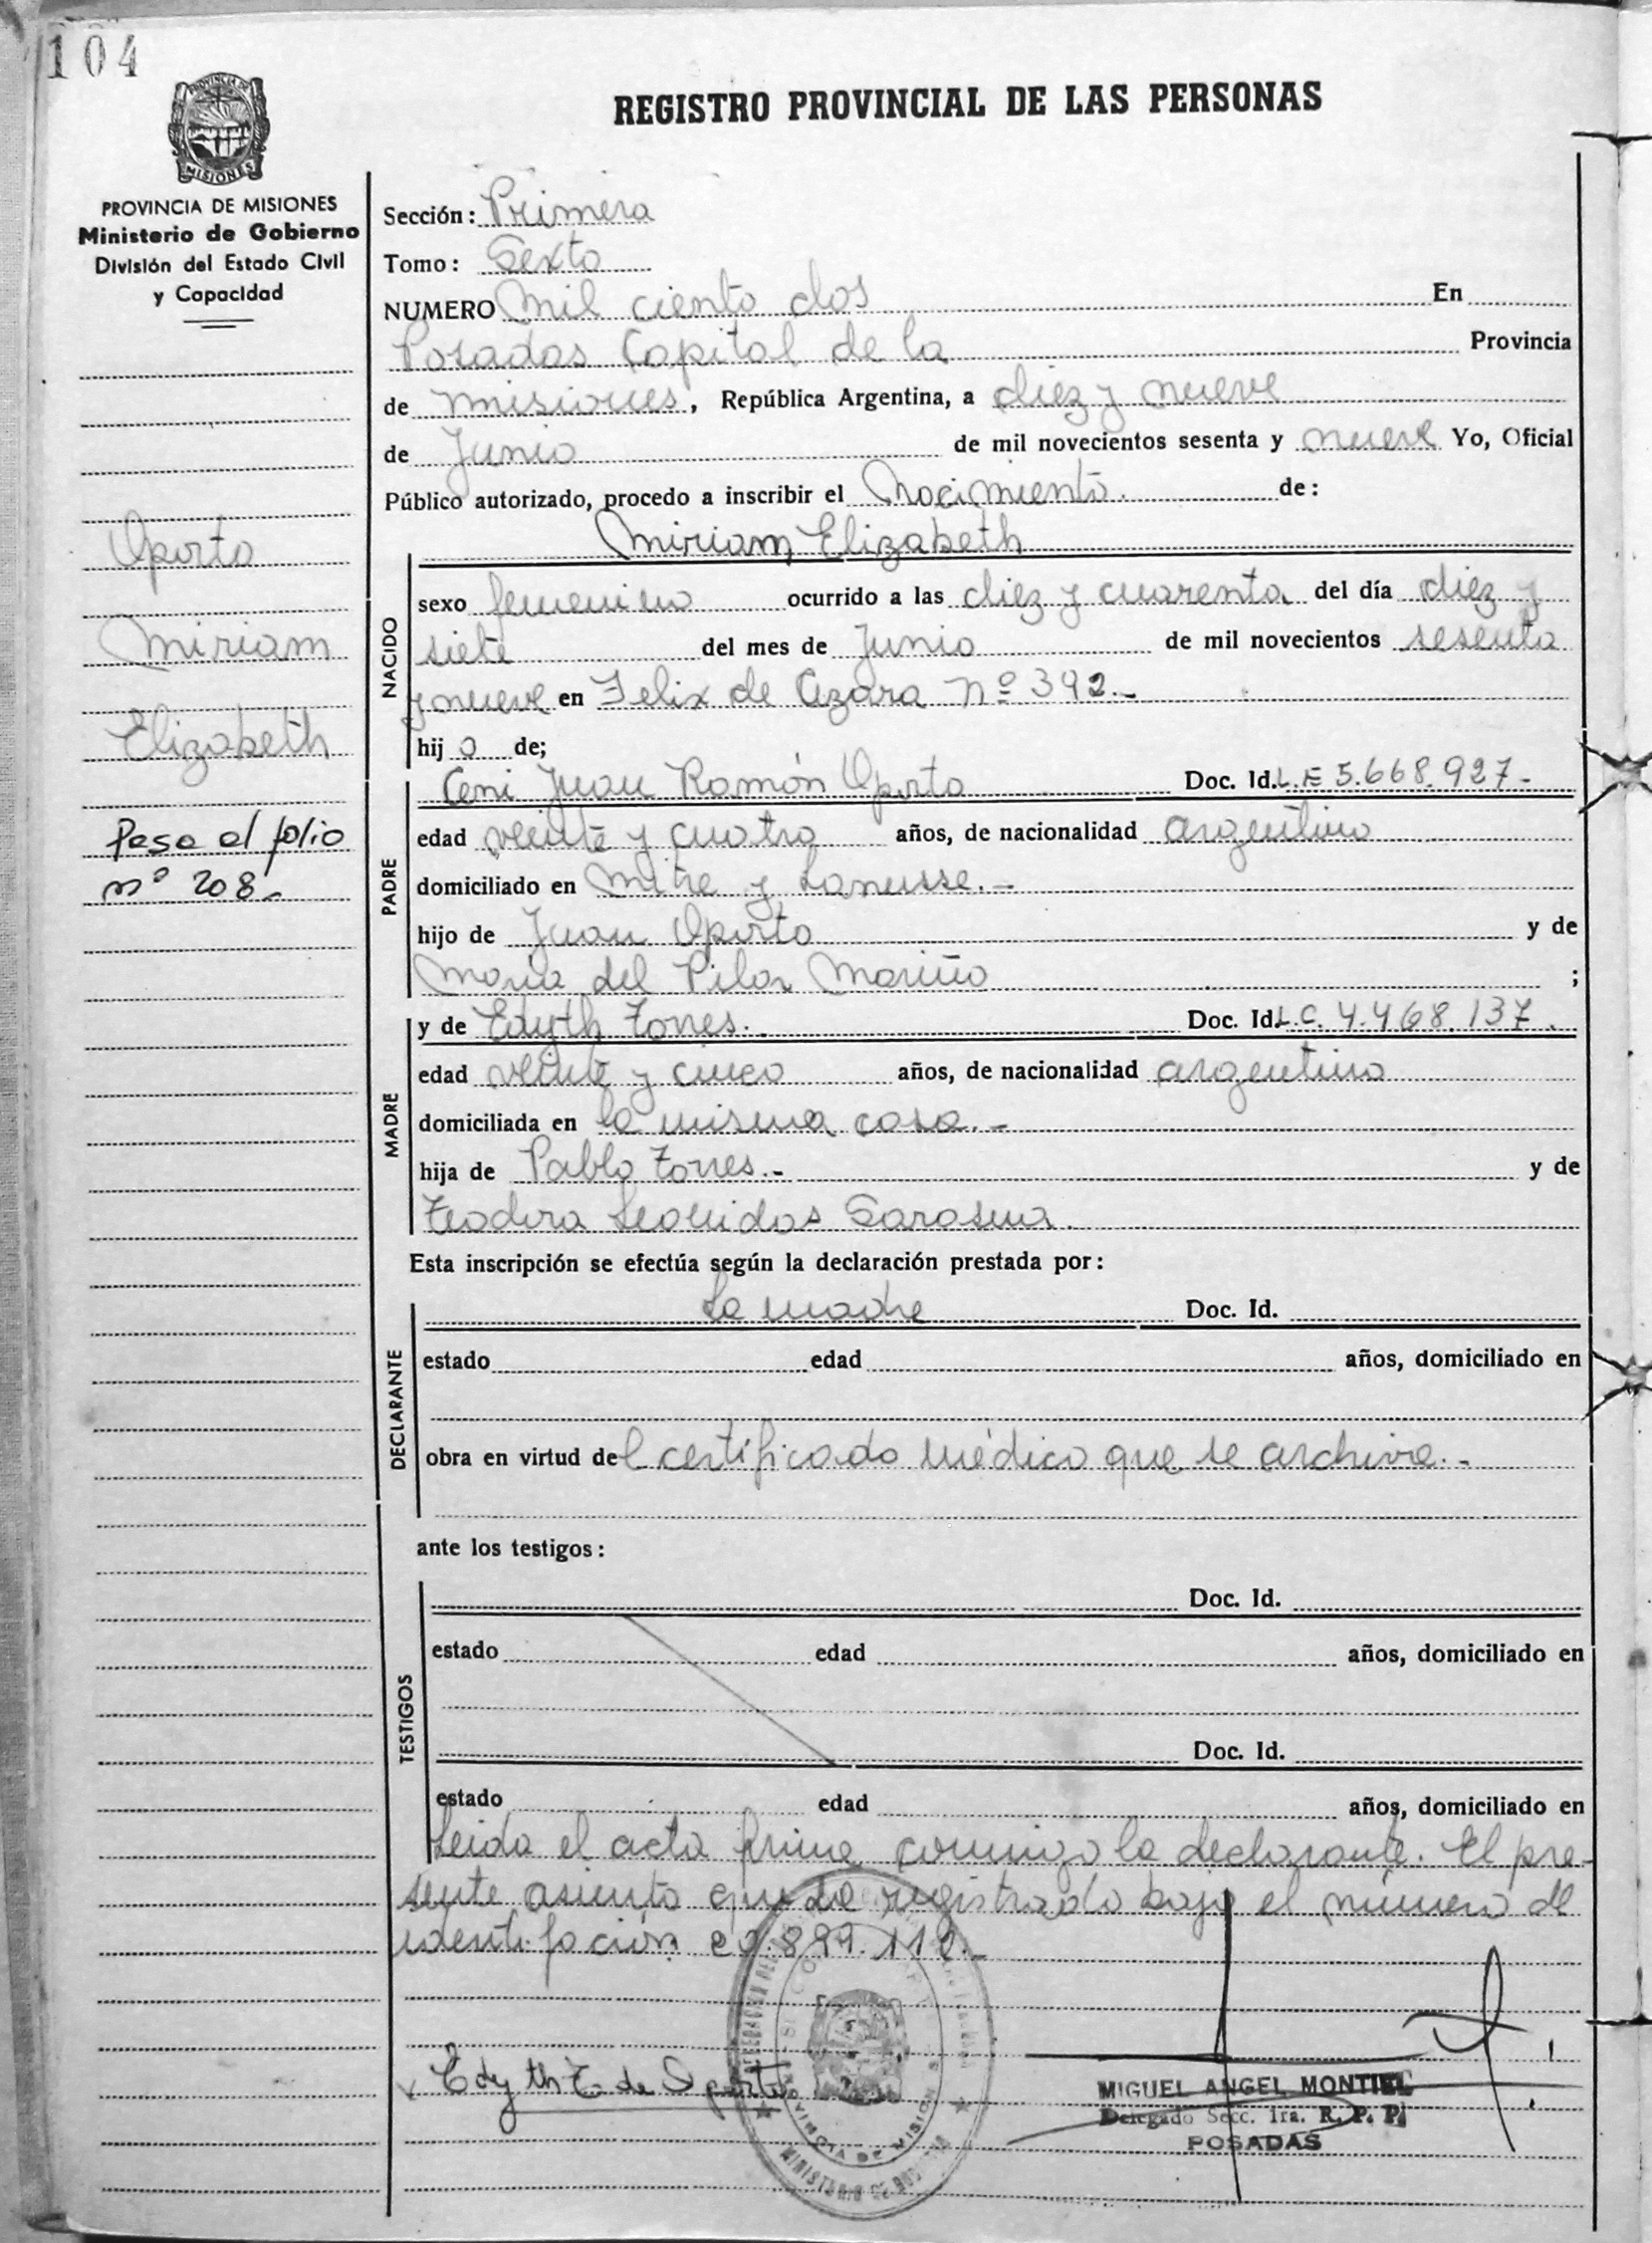 104
REGISTRO PROVINCIAL DE LAS PERSONAS
PROVINCIA DE MISIONES
Ministerio de Gobierno
División del Estado Civil
y Capacidad
Oporto
Miriam
Elizabeth
Pasa al folio
nº 208.-
Sección: Primera
Tomo: Sexto
NUMERO Mil ciento dos En
Posadas Capital de la Provincia
de Misiones, República Argentina, a diez y nueve
de Junio de mil novecientos sesenta y nueve Yo, Oficial
Público autorizado, procedo a inscribir el Nacimiento. de:
Miriam Elizabeth
NACIDO
sexo femenino ocurrido a las diez y cuarenta del día diez y
siete del mes de Junio de mil novecientos sesenta
y nueve en Felix de Azara Nº 392.-
hij a de;
PADRE
Ceni Juan Ramón Oporto Doc. Id. L.E 5.668.927-
edad veinte y cuatro años, de nacionalidad argentino
domiciliado en Mitre y Lanusse.-
hijo de Juan Oporto y de
Maria del Pilar Mariño ;
MADRE
y de Edyth Torres. Doc. Id. L.C. 4.468.137.
edad veinte y cinco años, de nacionalidad argentina
domiciliada en la misma casa.-
hija de Pablo Torres.- y de
Teodora Leonidas Sarasua.
Esta inscripción se efectúa según la declaración prestada por:
DECLARANTE
La madre Doc. Id.
estado edad años, domiciliado en
obra en virtud del certificado médico que se archiva.-
ante los testigos:
TESTIGOS
Doc. Id.
estado edad años, domiciliado en
Doc. Id.
estado edad años, domiciliado en
Leida el acta firma conmigo la declarante. El pre-
sente asiento queda registrado bajo el número de
identifación 20.899.110.-
Edyth T. de Oporto
MIGUEL ANGEL MONTIEL
Delegado Secc. 1ra. R. P. P.
POSADAS
PROVINCIA DE MISIONES